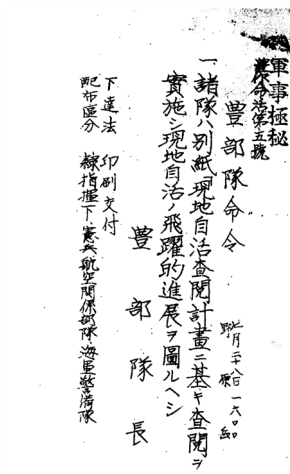 軍事極秘
豊作命法第五號
豊部隊命令
七月二十八日一六〇〇
一、諸隊ハ別紙「現地自活查閱計畫ニ基キ查閱ヲ
實施シ現地自活ノ飛躍的進展ヲ圖ルヘシ
豊部隊長
下達法 印刷交付
配布區分 隷指揮下、憲兵、航空関係部隊、海軍警備隊